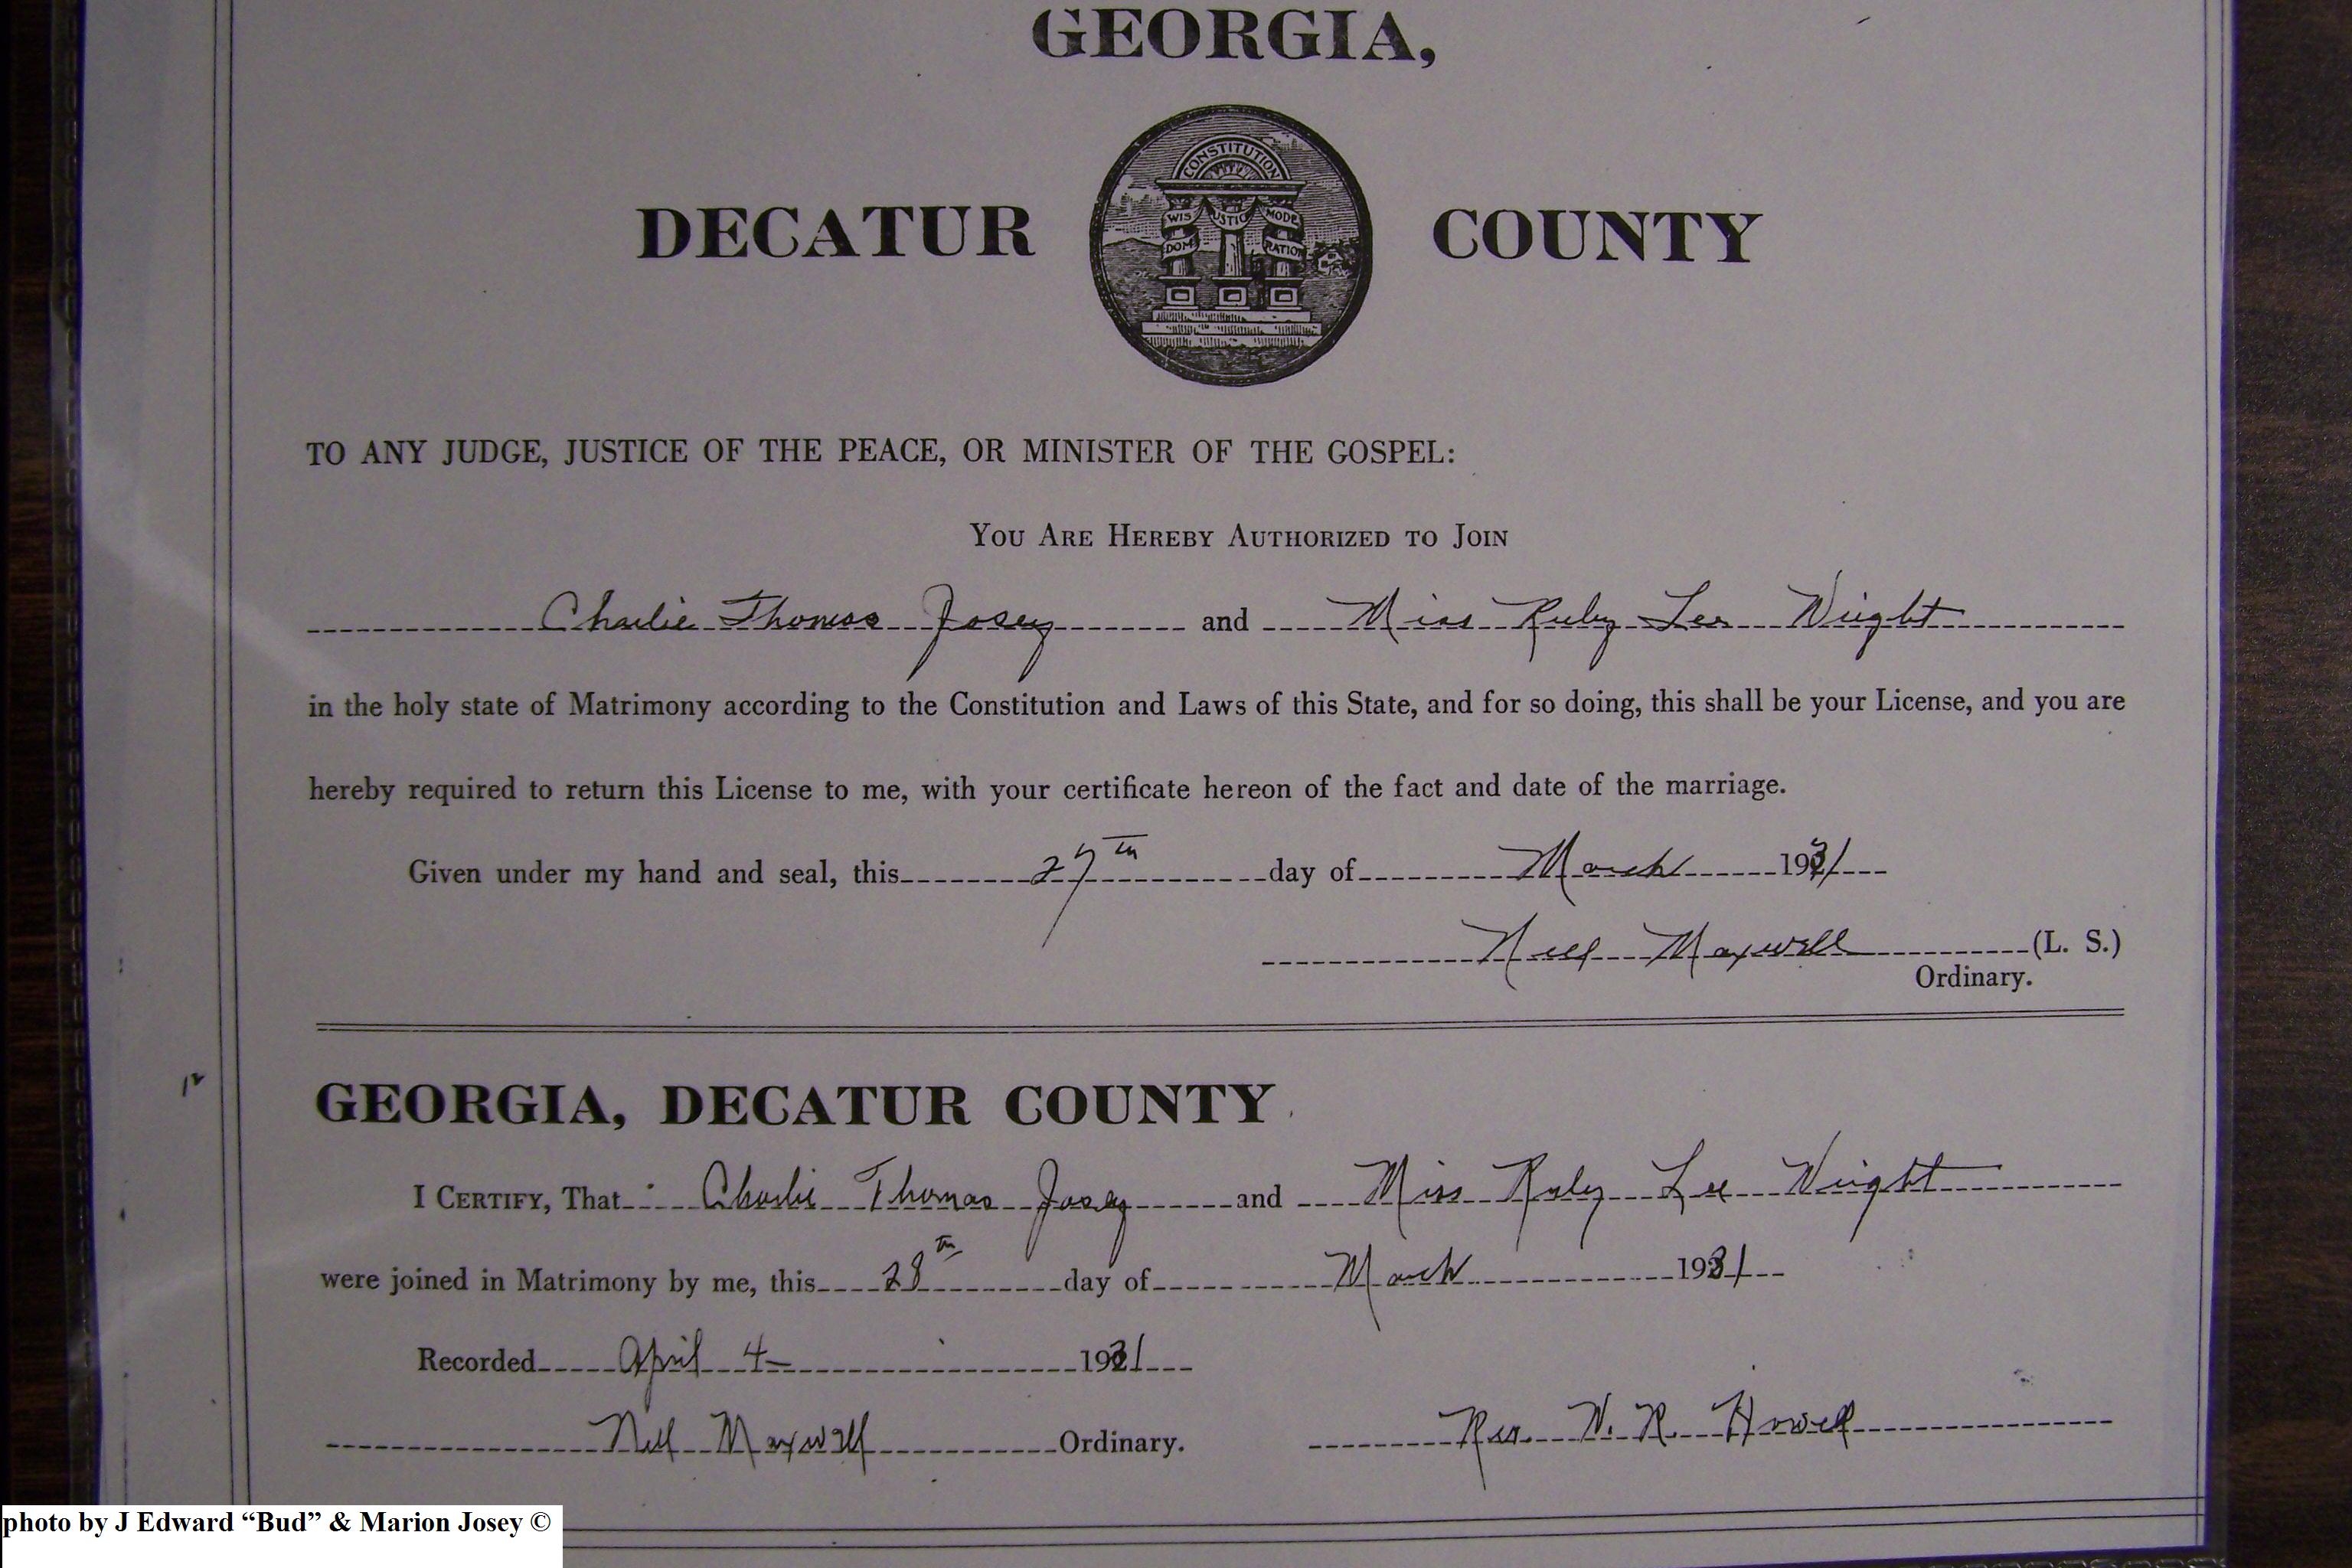 GEORGIA,
CONSTITUTION
WIS JUSTICE MODE
DOM RATION
DECATUR COUNTY
TO ANY JUDGE, JUSTICE OF THE PEACE, OR MINISTER OF THE GOSPEL:
YOU ARE HEREBY AUTHORIZED TO JOIN
Charlie Thomas Josey and Miss Ruby Lee Wright
in the holy state of Matrimony according to the Constitution and Laws of this State, and for so doing, this shall be your License, and you are
hereby required to return this License to me, with your certificate hereon of the fact and date of the marriage.
Given under my hand and seal, this 27th day of March 1931
Maxwell (L. S.)
Ordinary.
12
GEORGIA, DECATUR COUNTY
I CERTIFY, That Charlie Thomas Josey and Miss Ruby Lee Wright
were joined in Matrimony by me, this 28th day of March 1931
Recorded April 4 1931
Maxwell Ordinary. Rev. W. R. Howell
photo by J Edward “Bud” & Marion Josey ©